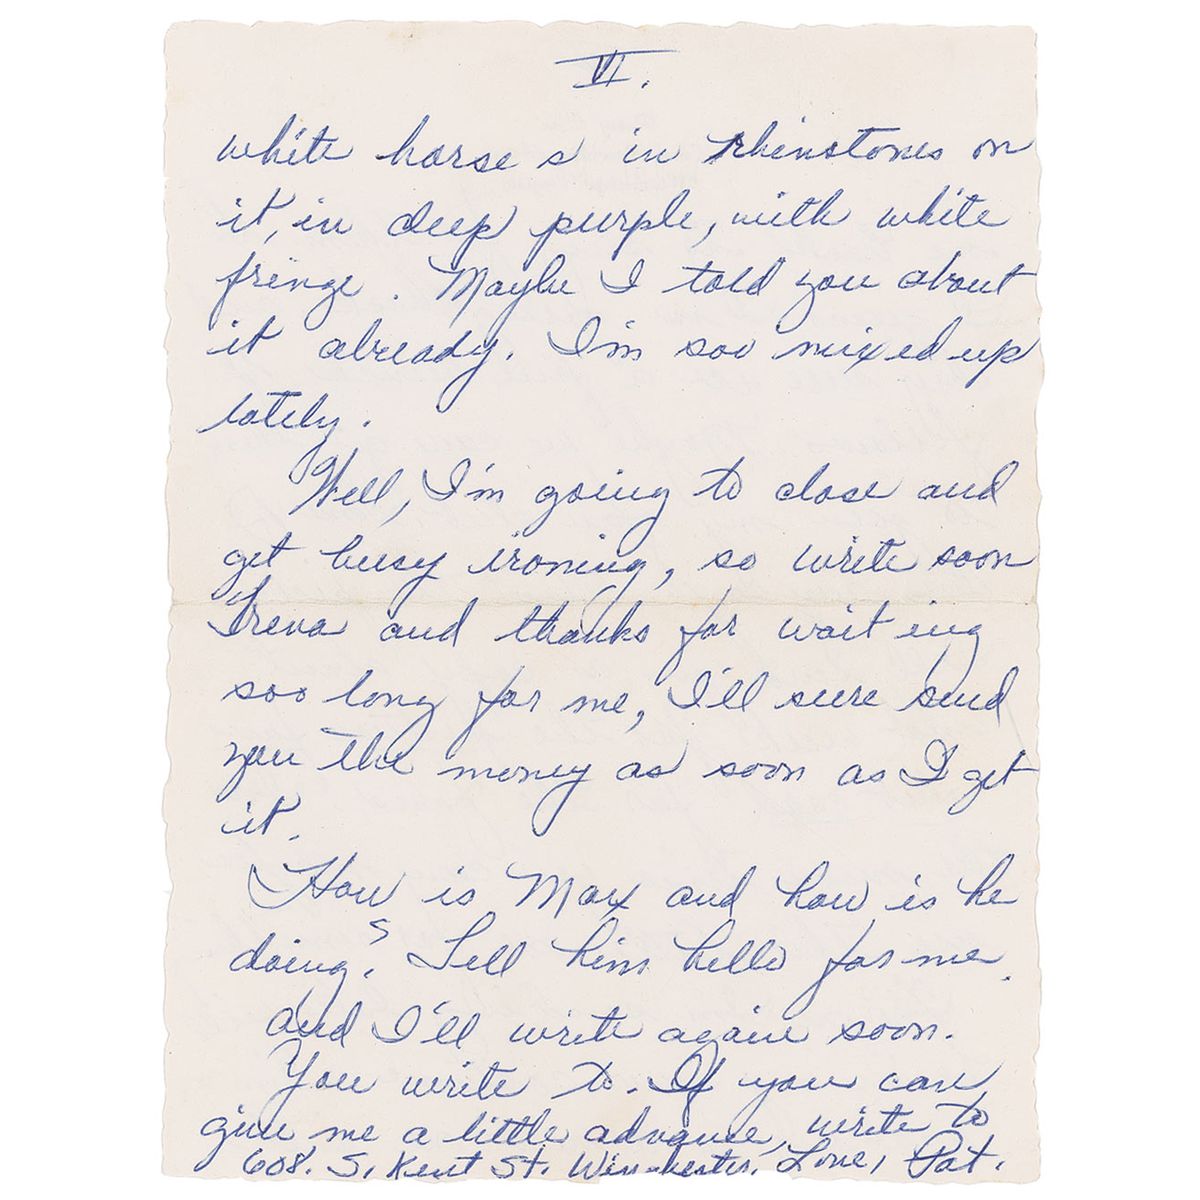 VI.
white horse s in rhinstones on
it, in deep purple, with white
fringe. Maybe I told you about
it already. I'm soo mixed up
lately.
Well, I'm going to close and
get busy ironing, so write soon
Treva and thanks for waiting
soo long for me, I'll sure send
you the money as soon as I get
it.
How is Max and how is he
doing? Tell him hello for me.
and I'll write again soon.
You write to. If you can,
give me a little advance, write to
608. S. Kent St. Winchester. Love, Pat.